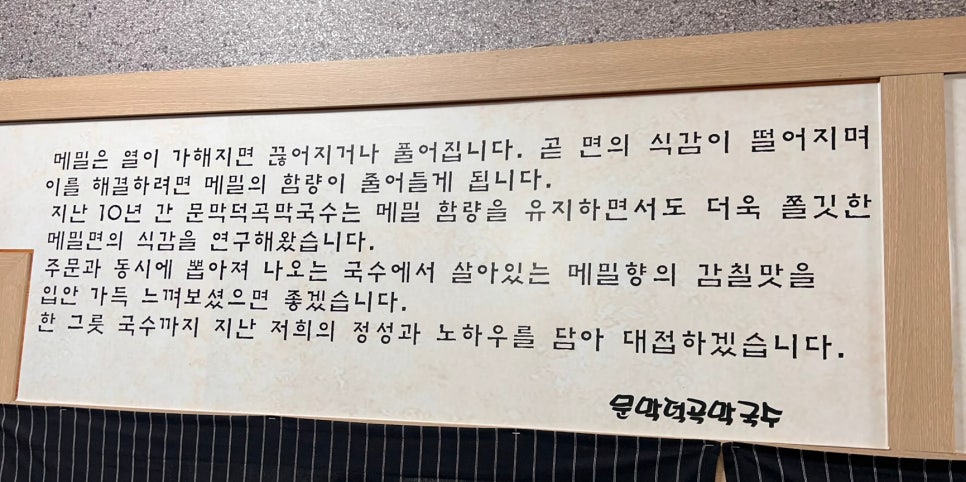 메밀은 열이 가해지면 끊어지거나 풀어집니다. 곧 면의 식감이 떨어지며
이를 해결하려면 메밀의 함량이 줄어들게 됩니다.
지난 10년 간 문막덕곡막국수는 메밀 함량을 유지하면서도 더욱 쫄깃한
메밀면의 식감을 연구해왔습니다.
주문과 동시에 뽑아져 나오는 국수에서 살아있는 메밀향의 감칠맛을
입안 가득 느껴보셨으면 좋겠습니다.
한 그릇 국수까지 지난 저희의 정성과 노하우를 담아 대접하겠습니다.
문막덕곡막국수